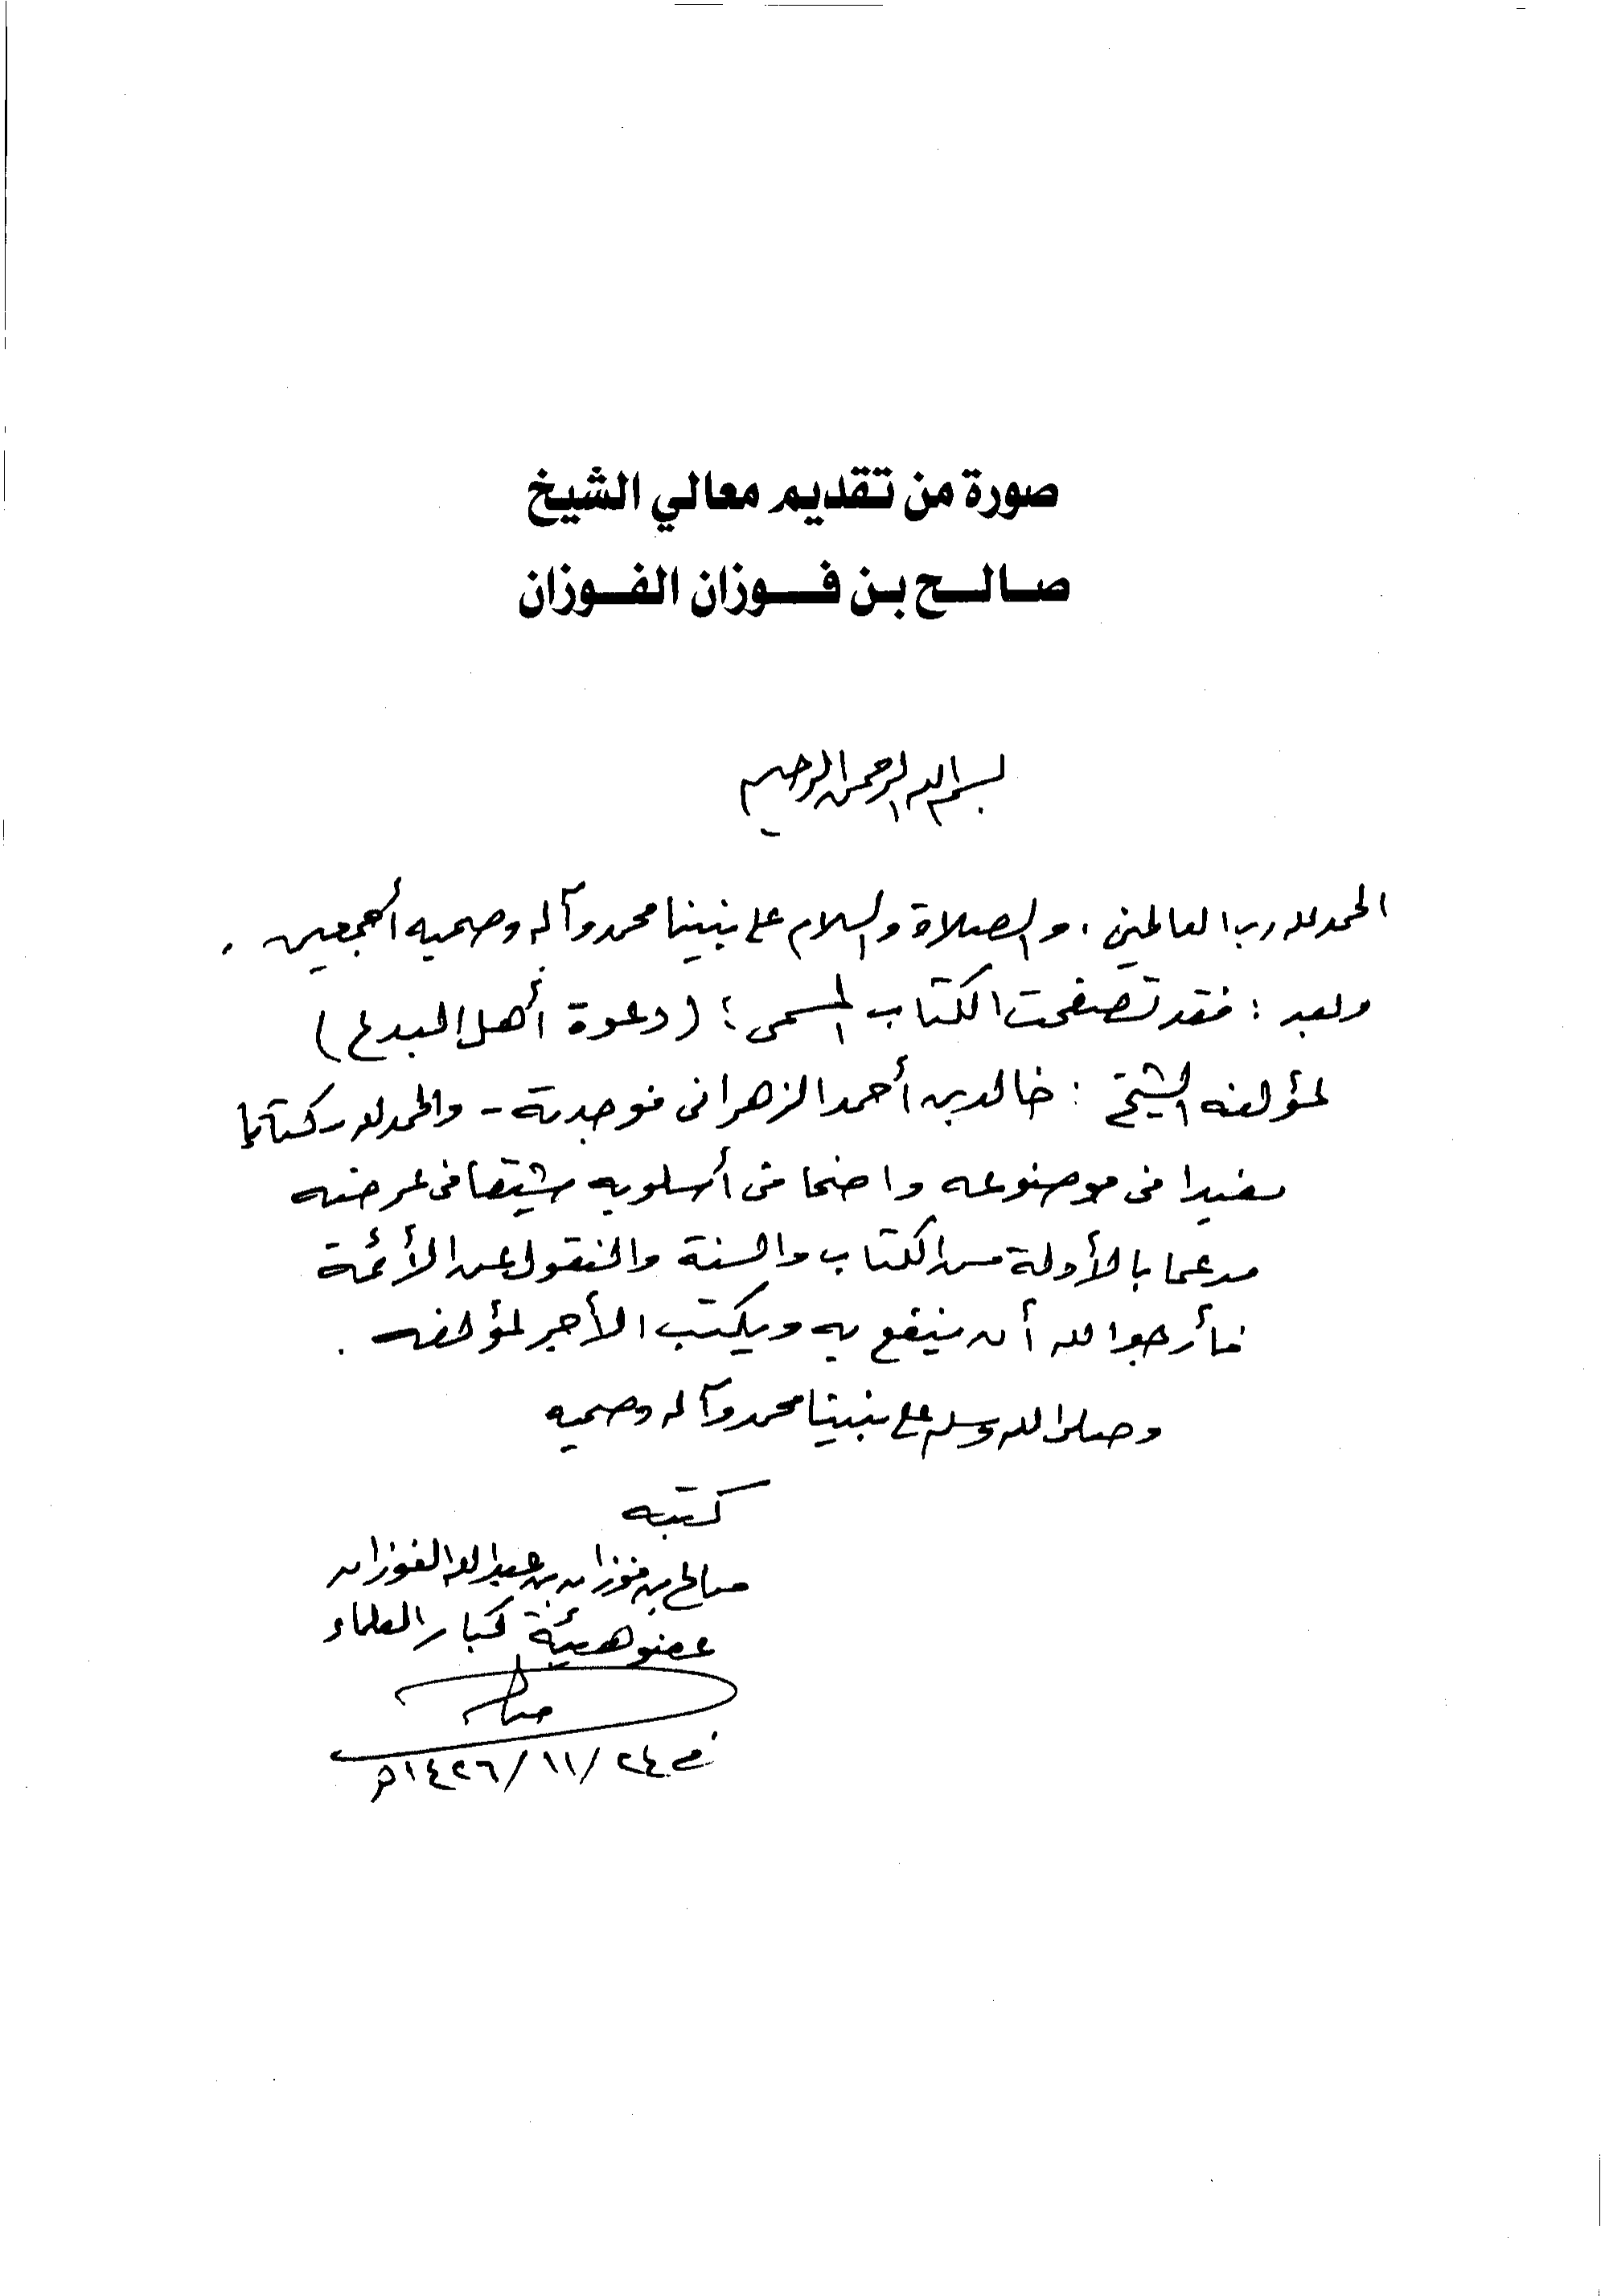 صورة من تقديم معالي الشيخ
صالح بن فوزان الفوزان
بسم الله الرحمن الرحيم
الحمد لله رب العالمين ، والصلاة والسلام على نبينا محمد وآله وصحبه أجمعين .
وبعد : فقد تصفحت الكتاب المسمى : (دعوة أهل البدع)
لمؤلفه الشيخ : خالد بن أحمد الزهراني فوجدته - والحمد لله - كتابا
مفيدا في موضوعه واضحا في أسلوبه شيقا في عرضه
مدعما بالأدلة من الكتاب والسنة والنقول عن الأئمة
فأرجوا الله أن ينفع به ويكتب الأجر لمؤلفه .
وصلى الله وسلم على نبينا محمد وآله وصحبه
كتبه
صالح بن فوزان بن عبد الله الفوزان
عضو هيئة كبار العلماء
صالح
في ٢٤/١١/١٤٢٦هـ